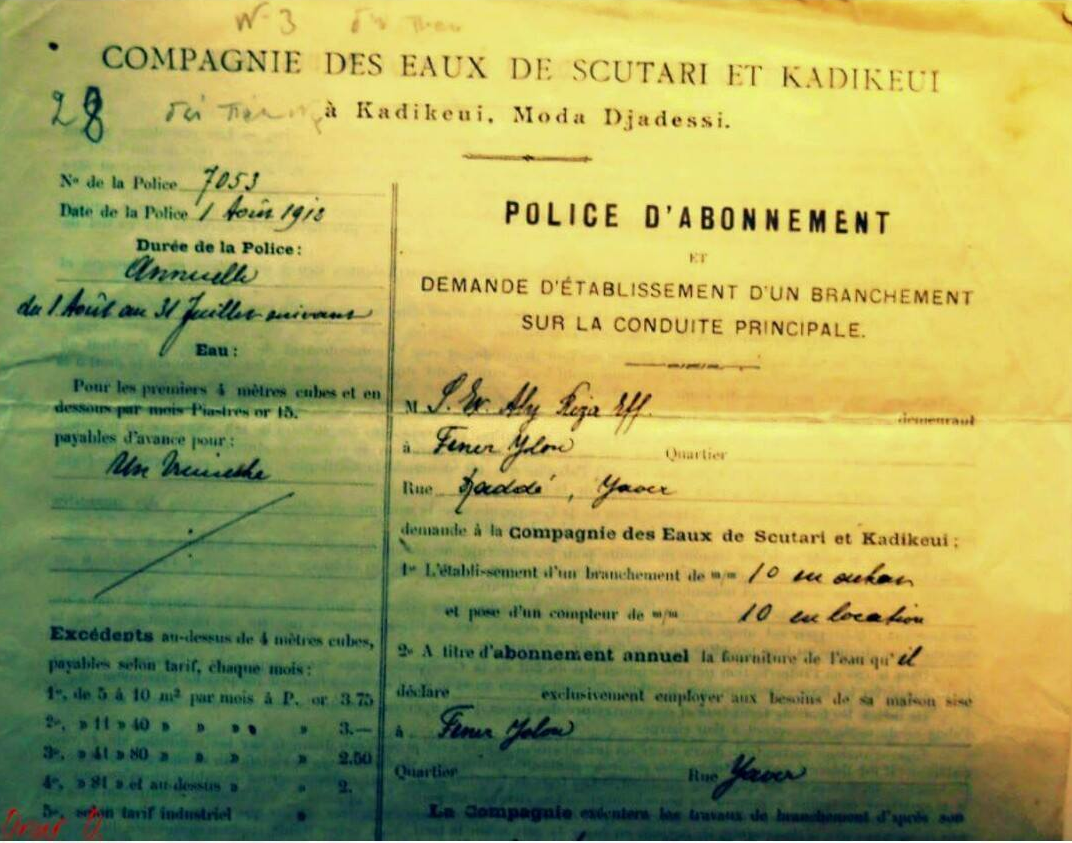 N-3
COMPAGNIE DES EAUX DE SCUTARI ET KADIKEUI
28
à Kadikeui, Moda Djadessi.
Nº de la Police 7053
Date de la Police 1 Août 191
Durée de la Police:
Annuelle
du 1 Août au 31 Juillet suivant
Eau:
Pour les premiers 4 mètres cubes et en
dessous par mois Piastres or 15.
payables d'avance pour:
Un
Excédents au-dessus de 4 mètres cubes,
payables selon tarif, chaque mois:
1º, de 5 à 10 m³ par mois à P. or 3.75
2º, » 11 » 40 » » » » 3.—
3º, » 41 » 80 » » » » 2.50
4º, » 81 » et au-dessus » » 2.
5º, selon tarif industriel »
POLICE D'ABONNEMENT
ET
DEMANDE D'ÉTABLISSEMENT D'UN BRANCHEMENT
SUR LA CONDUITE PRINCIPALE.
M S. Ex. Aly Riza Eff. demeurant
à Fener Yolou Quartier
Rue Yaver
demande à la Compagnie des Eaux de Scutari et Kadikeui;
1º L'établissement d'un branchement de m/m 10 en
et pose d'un compteur de m/m 10 en location
2º A titre d'abonnement annuel la fourniture de l'eau qu'il
déclare exclusivement employer aux besoins de sa maison sise
à Fener Yolou
Quartier Rue Yaver
La Compagnie exécutera les travaux de branchement d'après son